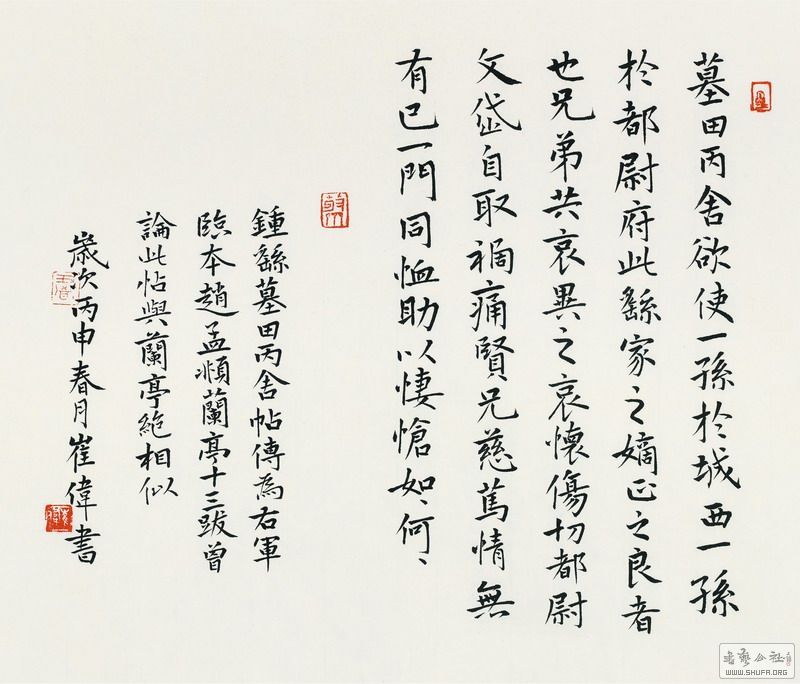 墓田丙舍欲使一孫於城西一孫
於都尉府此繇家之嫡正之良者
也兄弟共哀異之哀懷傷切都尉
文岱自取禍痛賢兄慈篤情無
有已一門同恤助以悽愴如何如何
鍾繇墓田丙舍帖傳為右軍
臨本趙孟頫蘭亭十三跋曾
論此帖與蘭亭絕相似
歲次丙申春月崔偉書
書藝公社
WWW.SHUFA.ORG